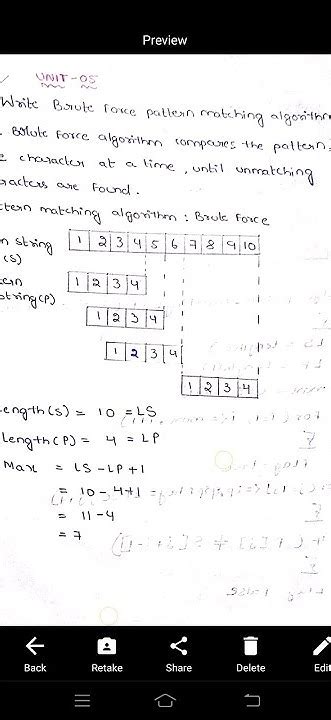 Preview
UNIT-05
Write Brute Force pattern matching algorithm
Brute Force algorithm compares the pattern
character at a time, until unmatching
racters are found.
tern matching algorithm : Brute Force
n string
(S)
1 2 3 4 5 6 7 8 9 10
tern
string(P)
1 2 3 4
1 2 3 4
1 2 3 4
1 2 3 4
ength(S) = 10 = LS
Length(P) = 4 = LP
Max = LS-LP+1
= 10-4+1
= 11-4
= 7
Back
Retake
Share
Delete
Edit